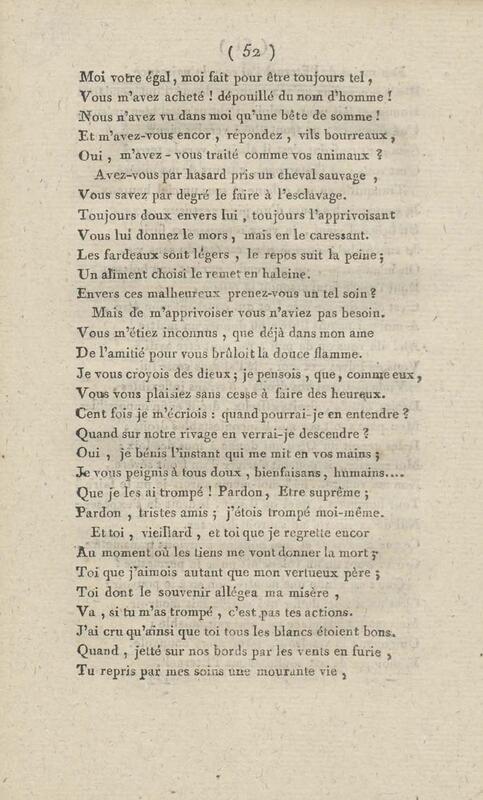 ( 52 )
Moi votre égal, moi fait pour être toujours tel,
Vous m'avez acheté ! dépouillé du nom d'homme !
Nous n'avez vu dans moi qu'une bête de somme !
Et m'avez-vous encor, répondez, vils bourreaux,
Oui, m'avez-vous traité comme vos animaux ?
Avez-vous par hasard pris un cheval sauvage,
Vous savez par degré le faire à l'esclavage.
Toujours doux envers lui, toujours l'apprivoisant
Vous lui donnez le mors, mais en le caressant.
Les fardeaux sont légers, le repos suit la peine ;
Un aliment choisi le remet en haleine.
Envers ces malheureux prenez-vous un tel soin ?
Mais de m'apprivoiser vous n'aviez pas besoin.
Vous m'étiez inconnus, que déjà dans mon ame
De l'amitié pour vous brûloit la douce flamme.
Je vous croyois des dieux ; je pensois, que, comme eux,
Vous vous plaisiez sans cesse à faire des heureux.
Cent fois je m'écriois : quand pourrai-je en entendre ?
Quand sur notre rivage en verrai-je descendre ?
Oui, je bénis l'instant qui me mit en vos mains ;
Je vous peignis à tous doux, bienfaisans, humains....
Que je les ai trompé ! Pardon, Etre suprême ;
Pardon, tristes amis ; j'étois trompé moi-même.
Et toi, vieillard, et toi que je regrette encor
Au moment où les tiens me vont donner la mort ;
Toi que j'aimois autant que mon vertueux père ;
Toi dont le souvenir allégea ma misère,
Va, si tu m'as trompé, c'est pas tes actions.
J'ai cru qu'ainsi que toi tous les blancs étoient bons.
Quand, jetté sur nos bords par les vents en furie,
Tu repris par mes soins une mourante vie,